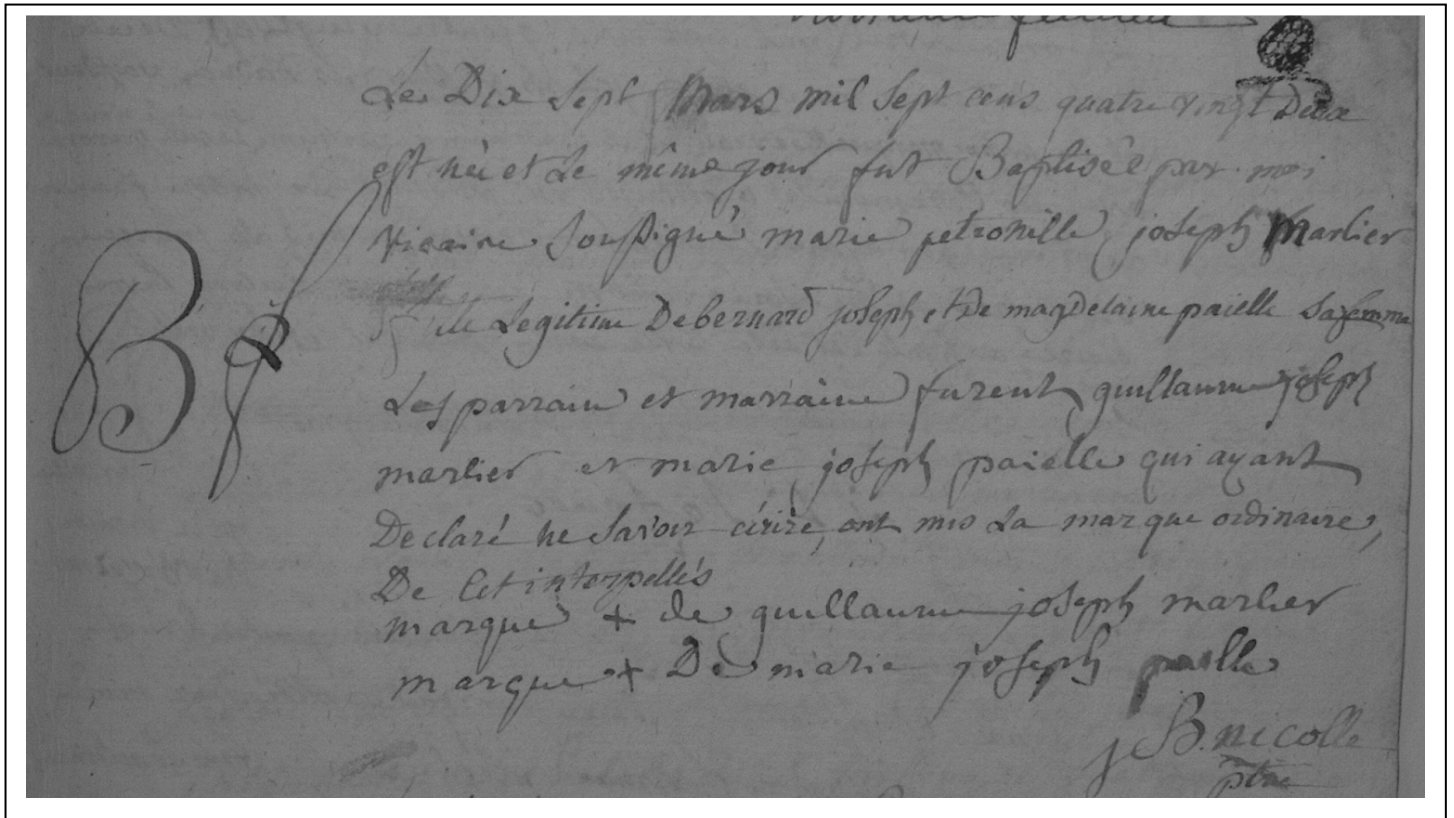 Le Dix Sept Mars mil Sept cens quatre vingt Deux
est née et Le même jour fut Baptisée par moi
Vicaire Soussigné marie petronille joseph Marlier
fille Legitime De bernard joseph et De magdelaine paielle Sa femme
Les parrain et marraine furent guillaume joseph
marlier et marie joseph paielle qui ayant
Declaré ne Savoir écrire, ont mis La marque ordinaire,
De Cet interpellés
marque + de guillaume joseph marlier
marque + De marie joseph paielle
B. nicolle
ptre